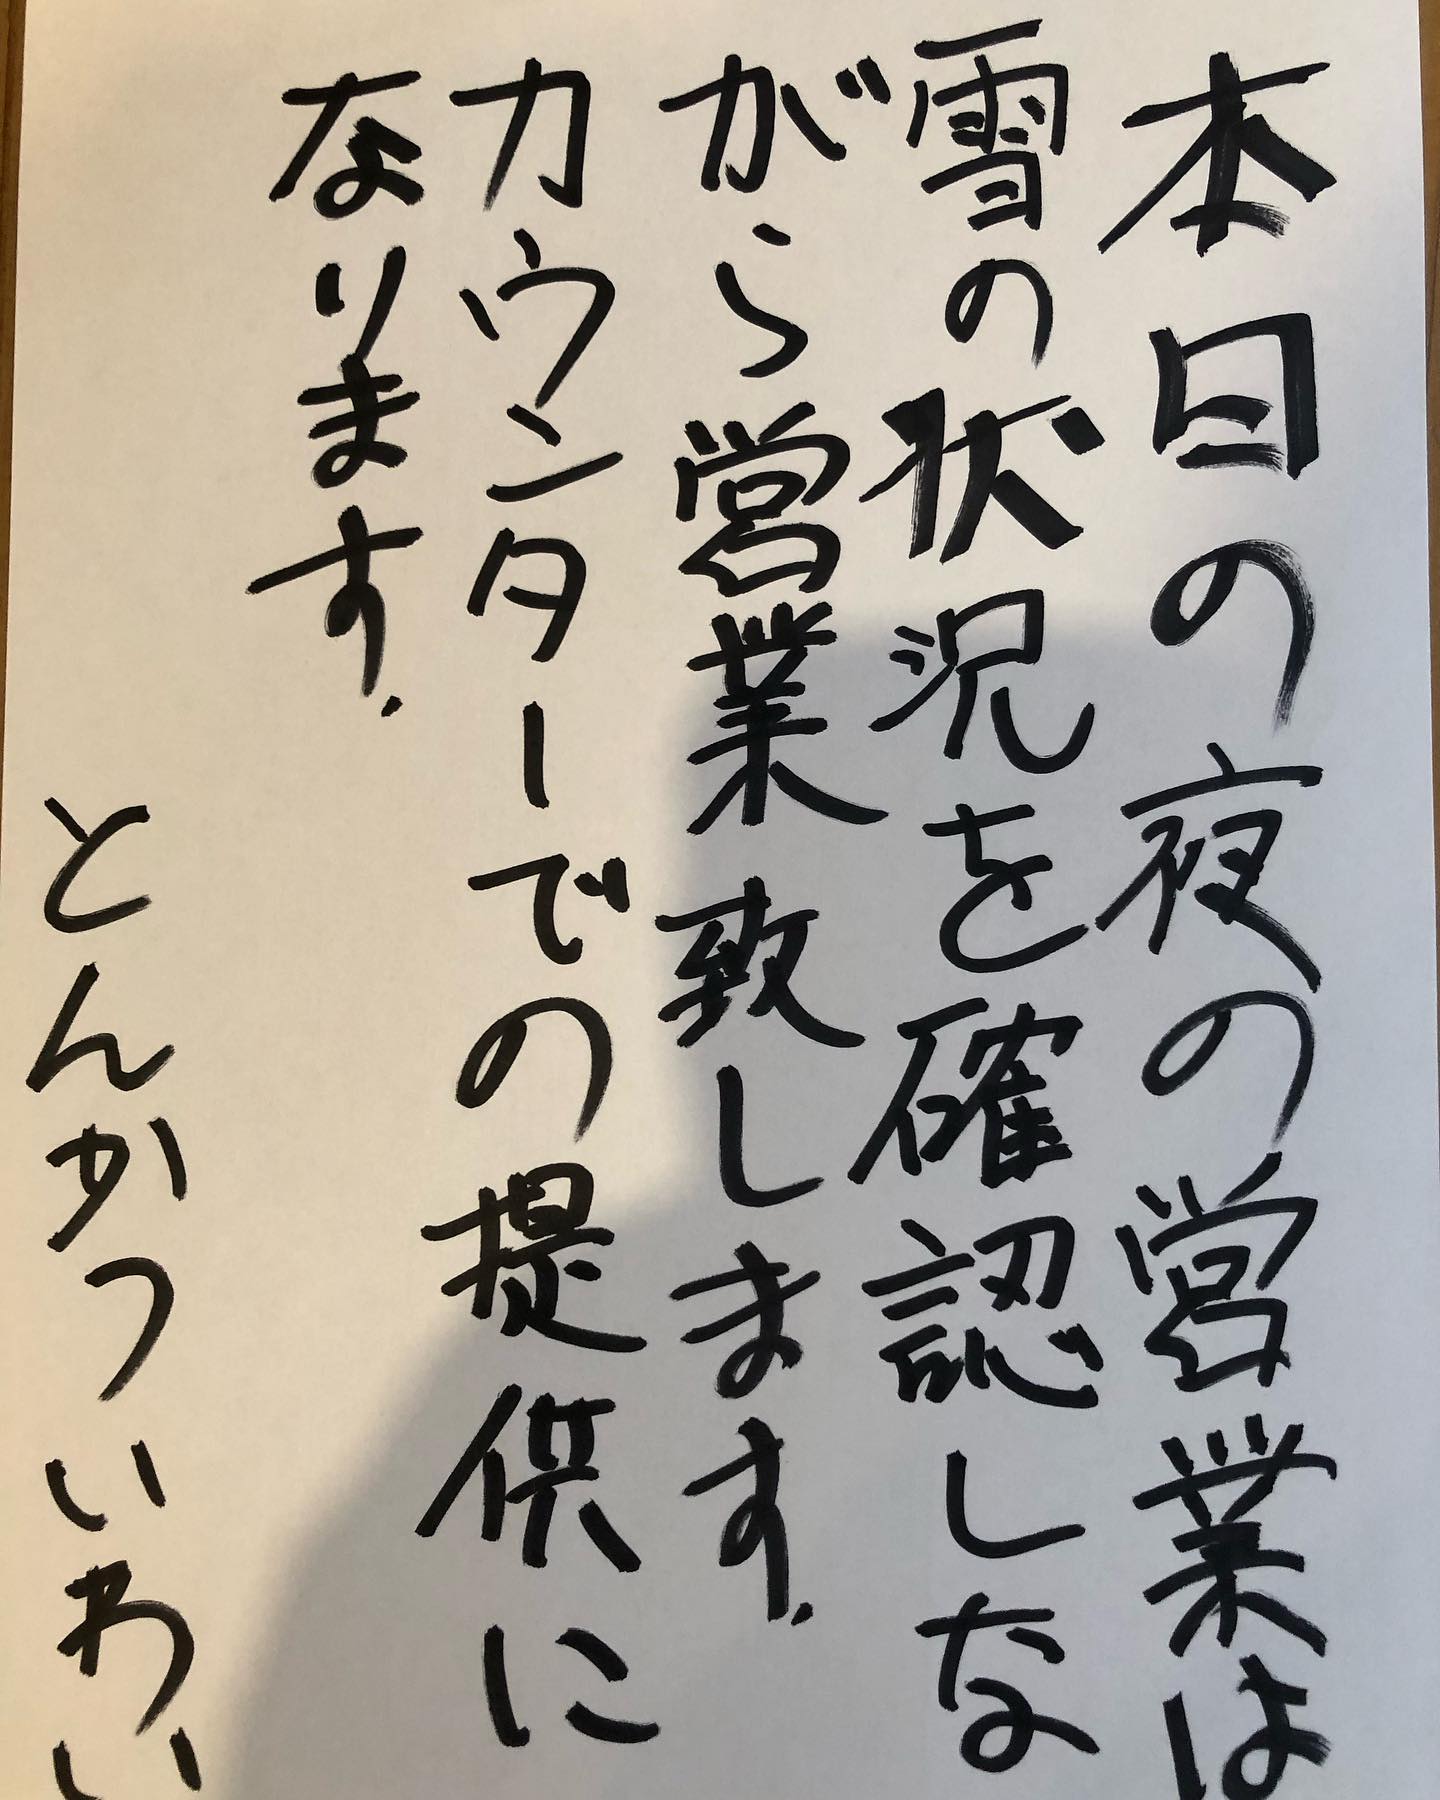 本日の夜の営業は
雪の状況を確認しな
がら営業致します.
カウンターでの提供に
なります.
とんかついわい